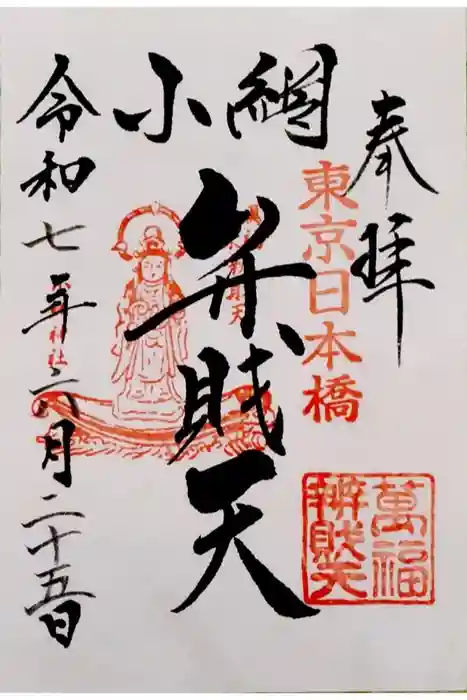 奉拝
東京日本橋
小網
弁財天
萬福
辨財天
令和七年六月二十五日